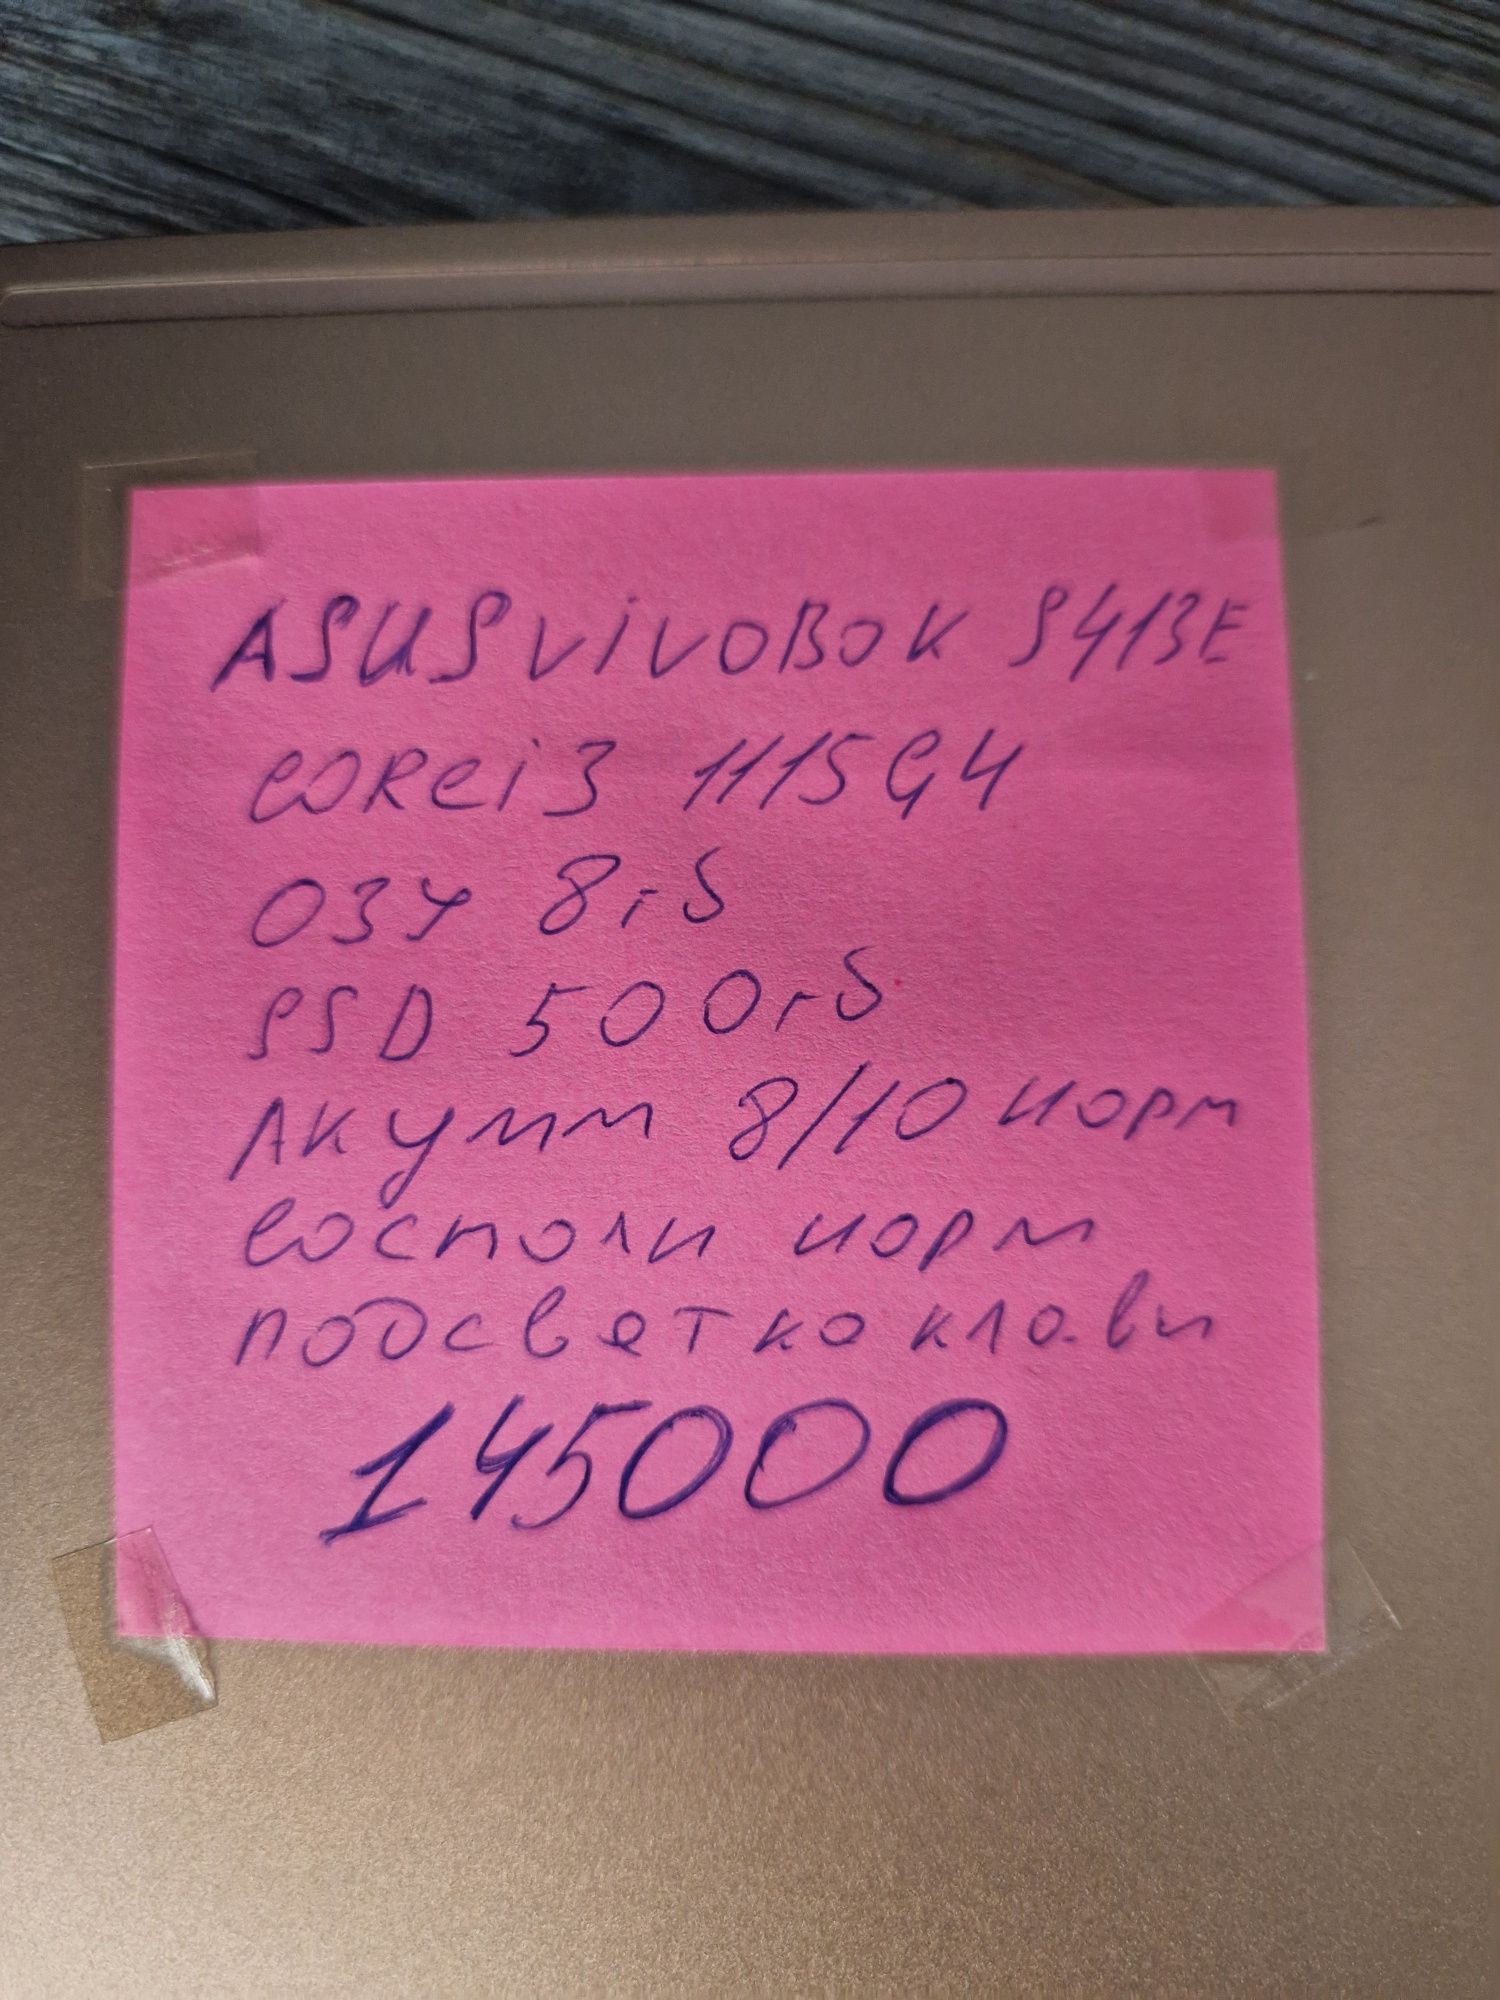 ASUS VIVOBOK S413E
CORei3 1115G4
ОЗУ 8гб
SSD 500гб
Акумм 8/10 норм
состоли норм
подсветка клави
145000